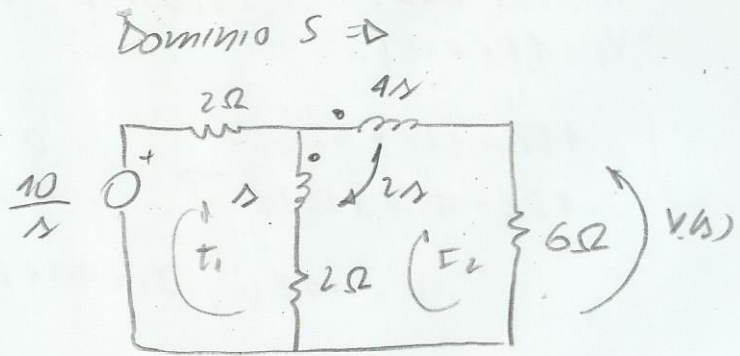 Dominio S ⇒
2Ω
4s
10/s
+
s
2s
I₁
2Ω
I₂
6Ω
V(s)